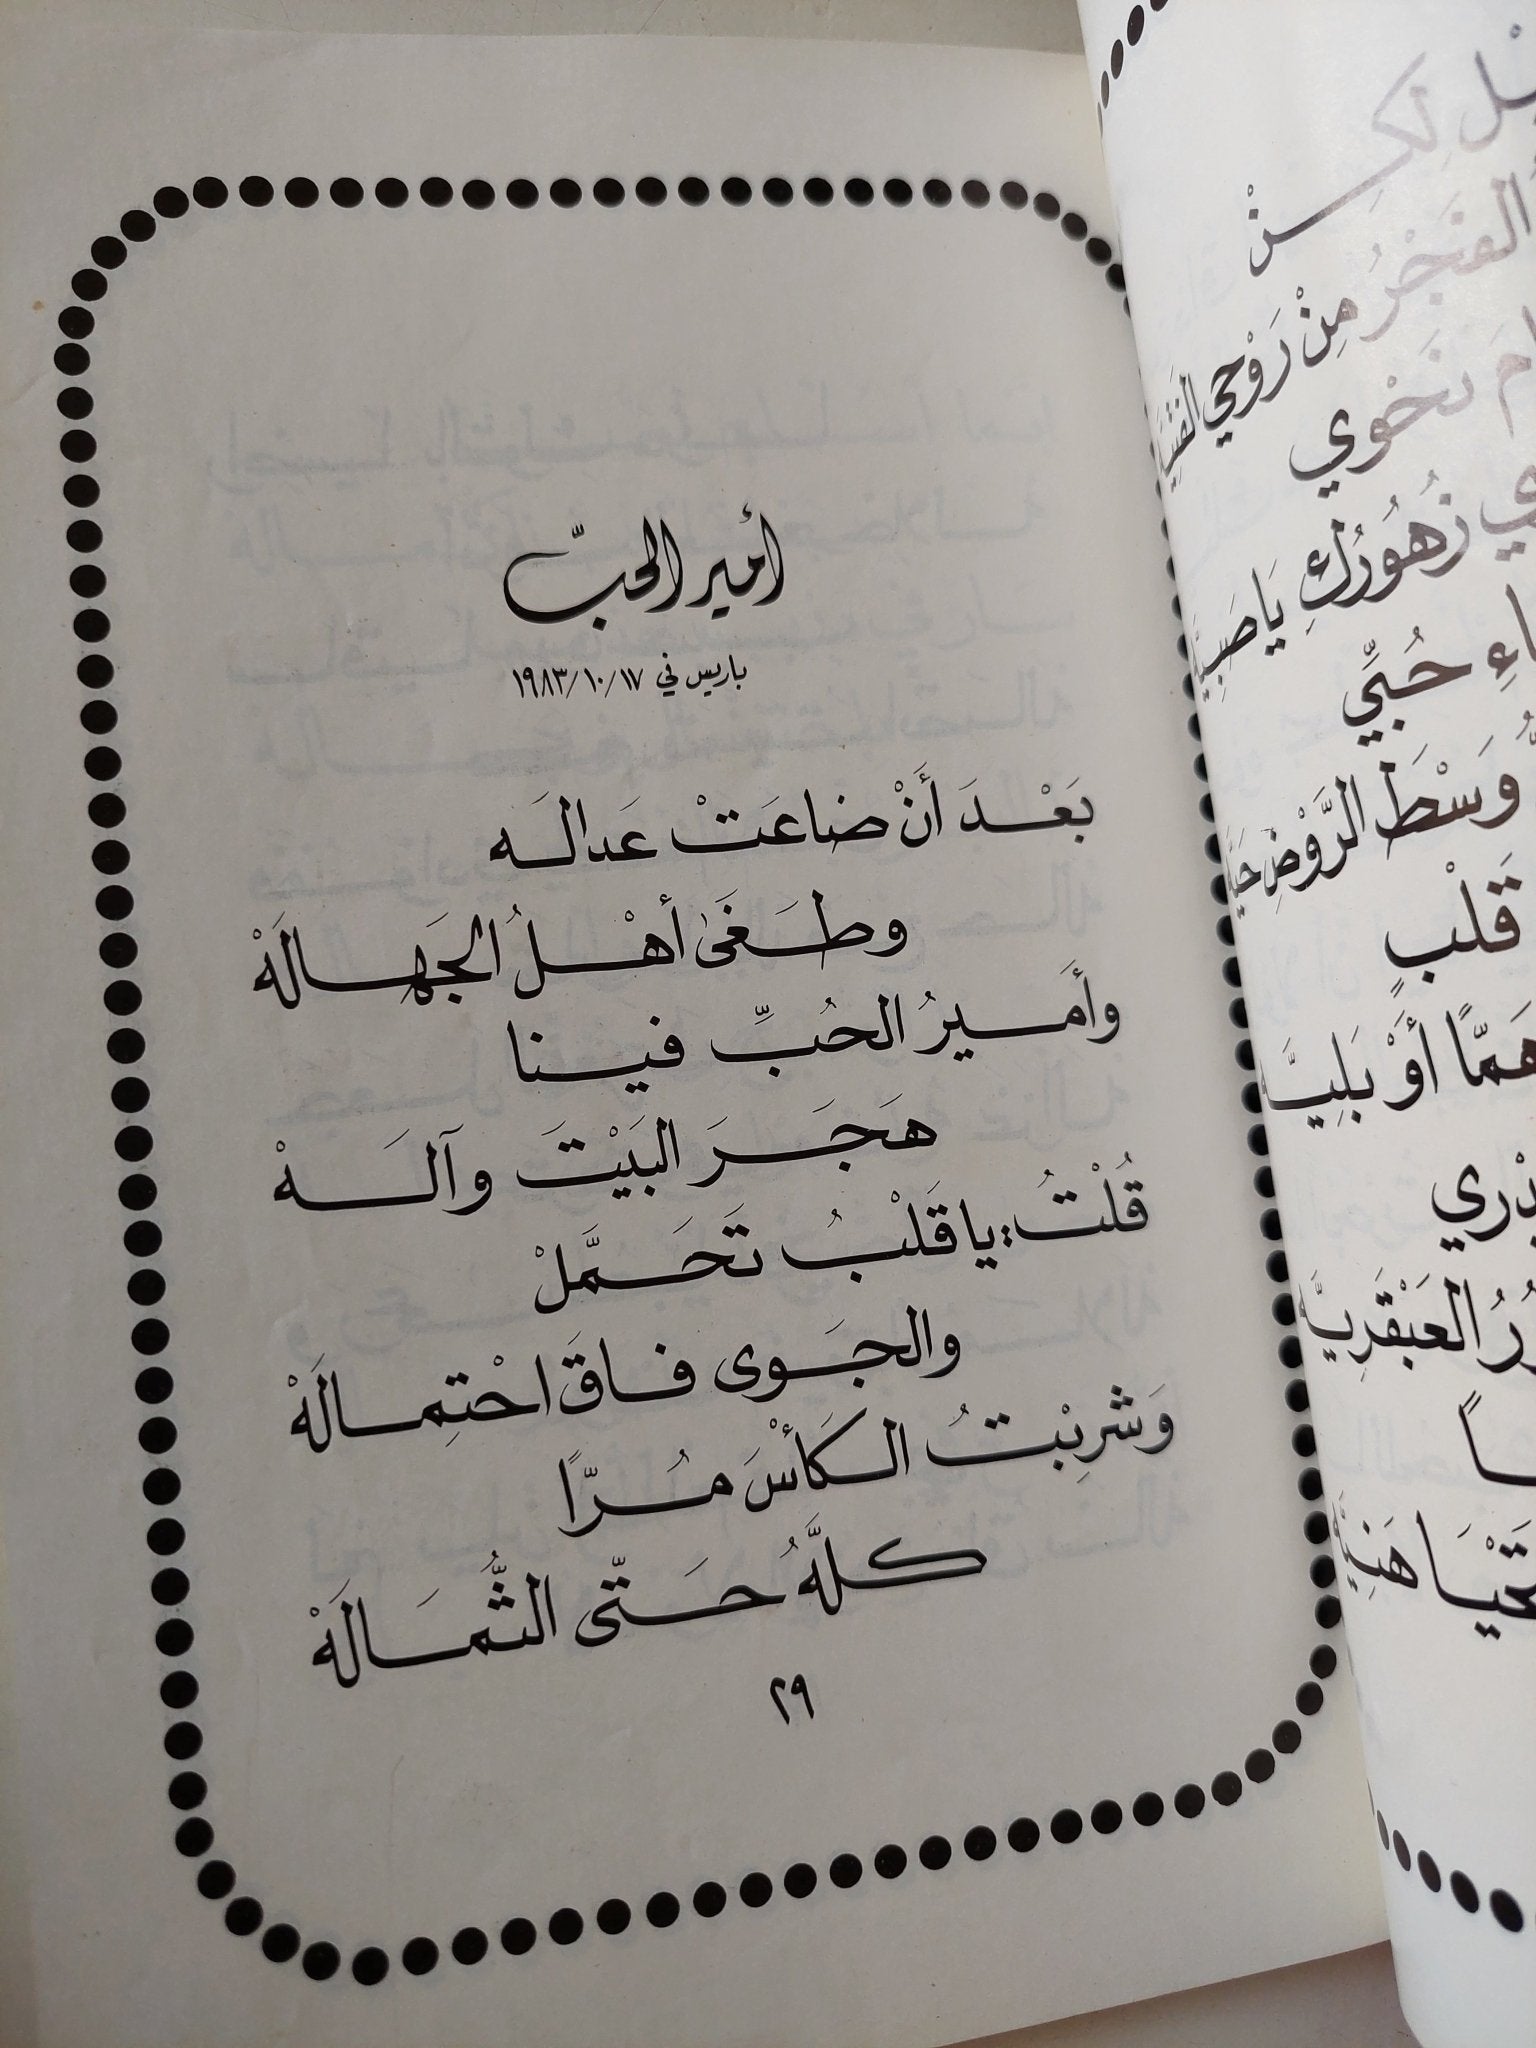 أمير الحبّ
باريس في ١٩٨٣/١٠/١٧
بَعْدَ أَنْ ضاعَتْ عَدالَه
وطَغَىٰ أهْلُ الجَهالَهْ
وأَميرُ الحُبِّ فينا
هَجَرَ البَيْتَ وآلَهْ
قُلْتُ: يا قَلْبُ تَحَمَّلْ
والجَوى فاقَ احْتِمالَهْ
وَشرِبْتُ الكَأْسَ مُرًّا
كلَّهُ حَتّى الثُّمَالَهْ
٢٩
لكِنْ
الفَجْرُ مِنْ رَوْحي
نَحْوي
زُهُورُكِ يَا صَبِيَّه
حُبِّي
وَسْطَ الرَّوْضِ
قَلْبٍ
هَمًّا أَوْ بَلِيَّه
العَبْقَرِيَّه
هَنِيَّه